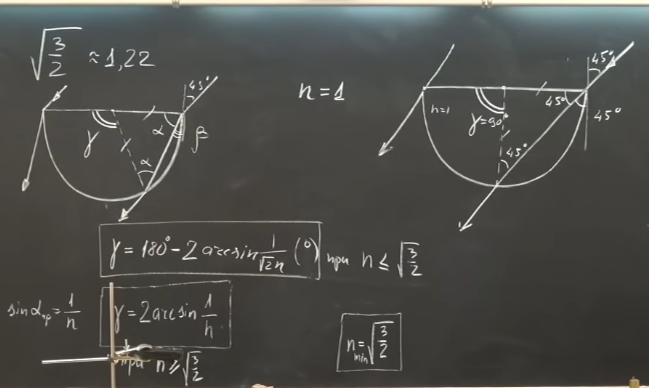 √3/2 ≈ 1,22
45°
γ
α
β
α
n = 1
45°
n=1
γ=90°
45°
45°
45°
γ = 180° - 2 arcsin 1/√2n (°) при n ≤ √3/2
sin αпр = 1/n
γ = 2 arcsin 1/n
при n ≥ √3/2
n min = √3/2